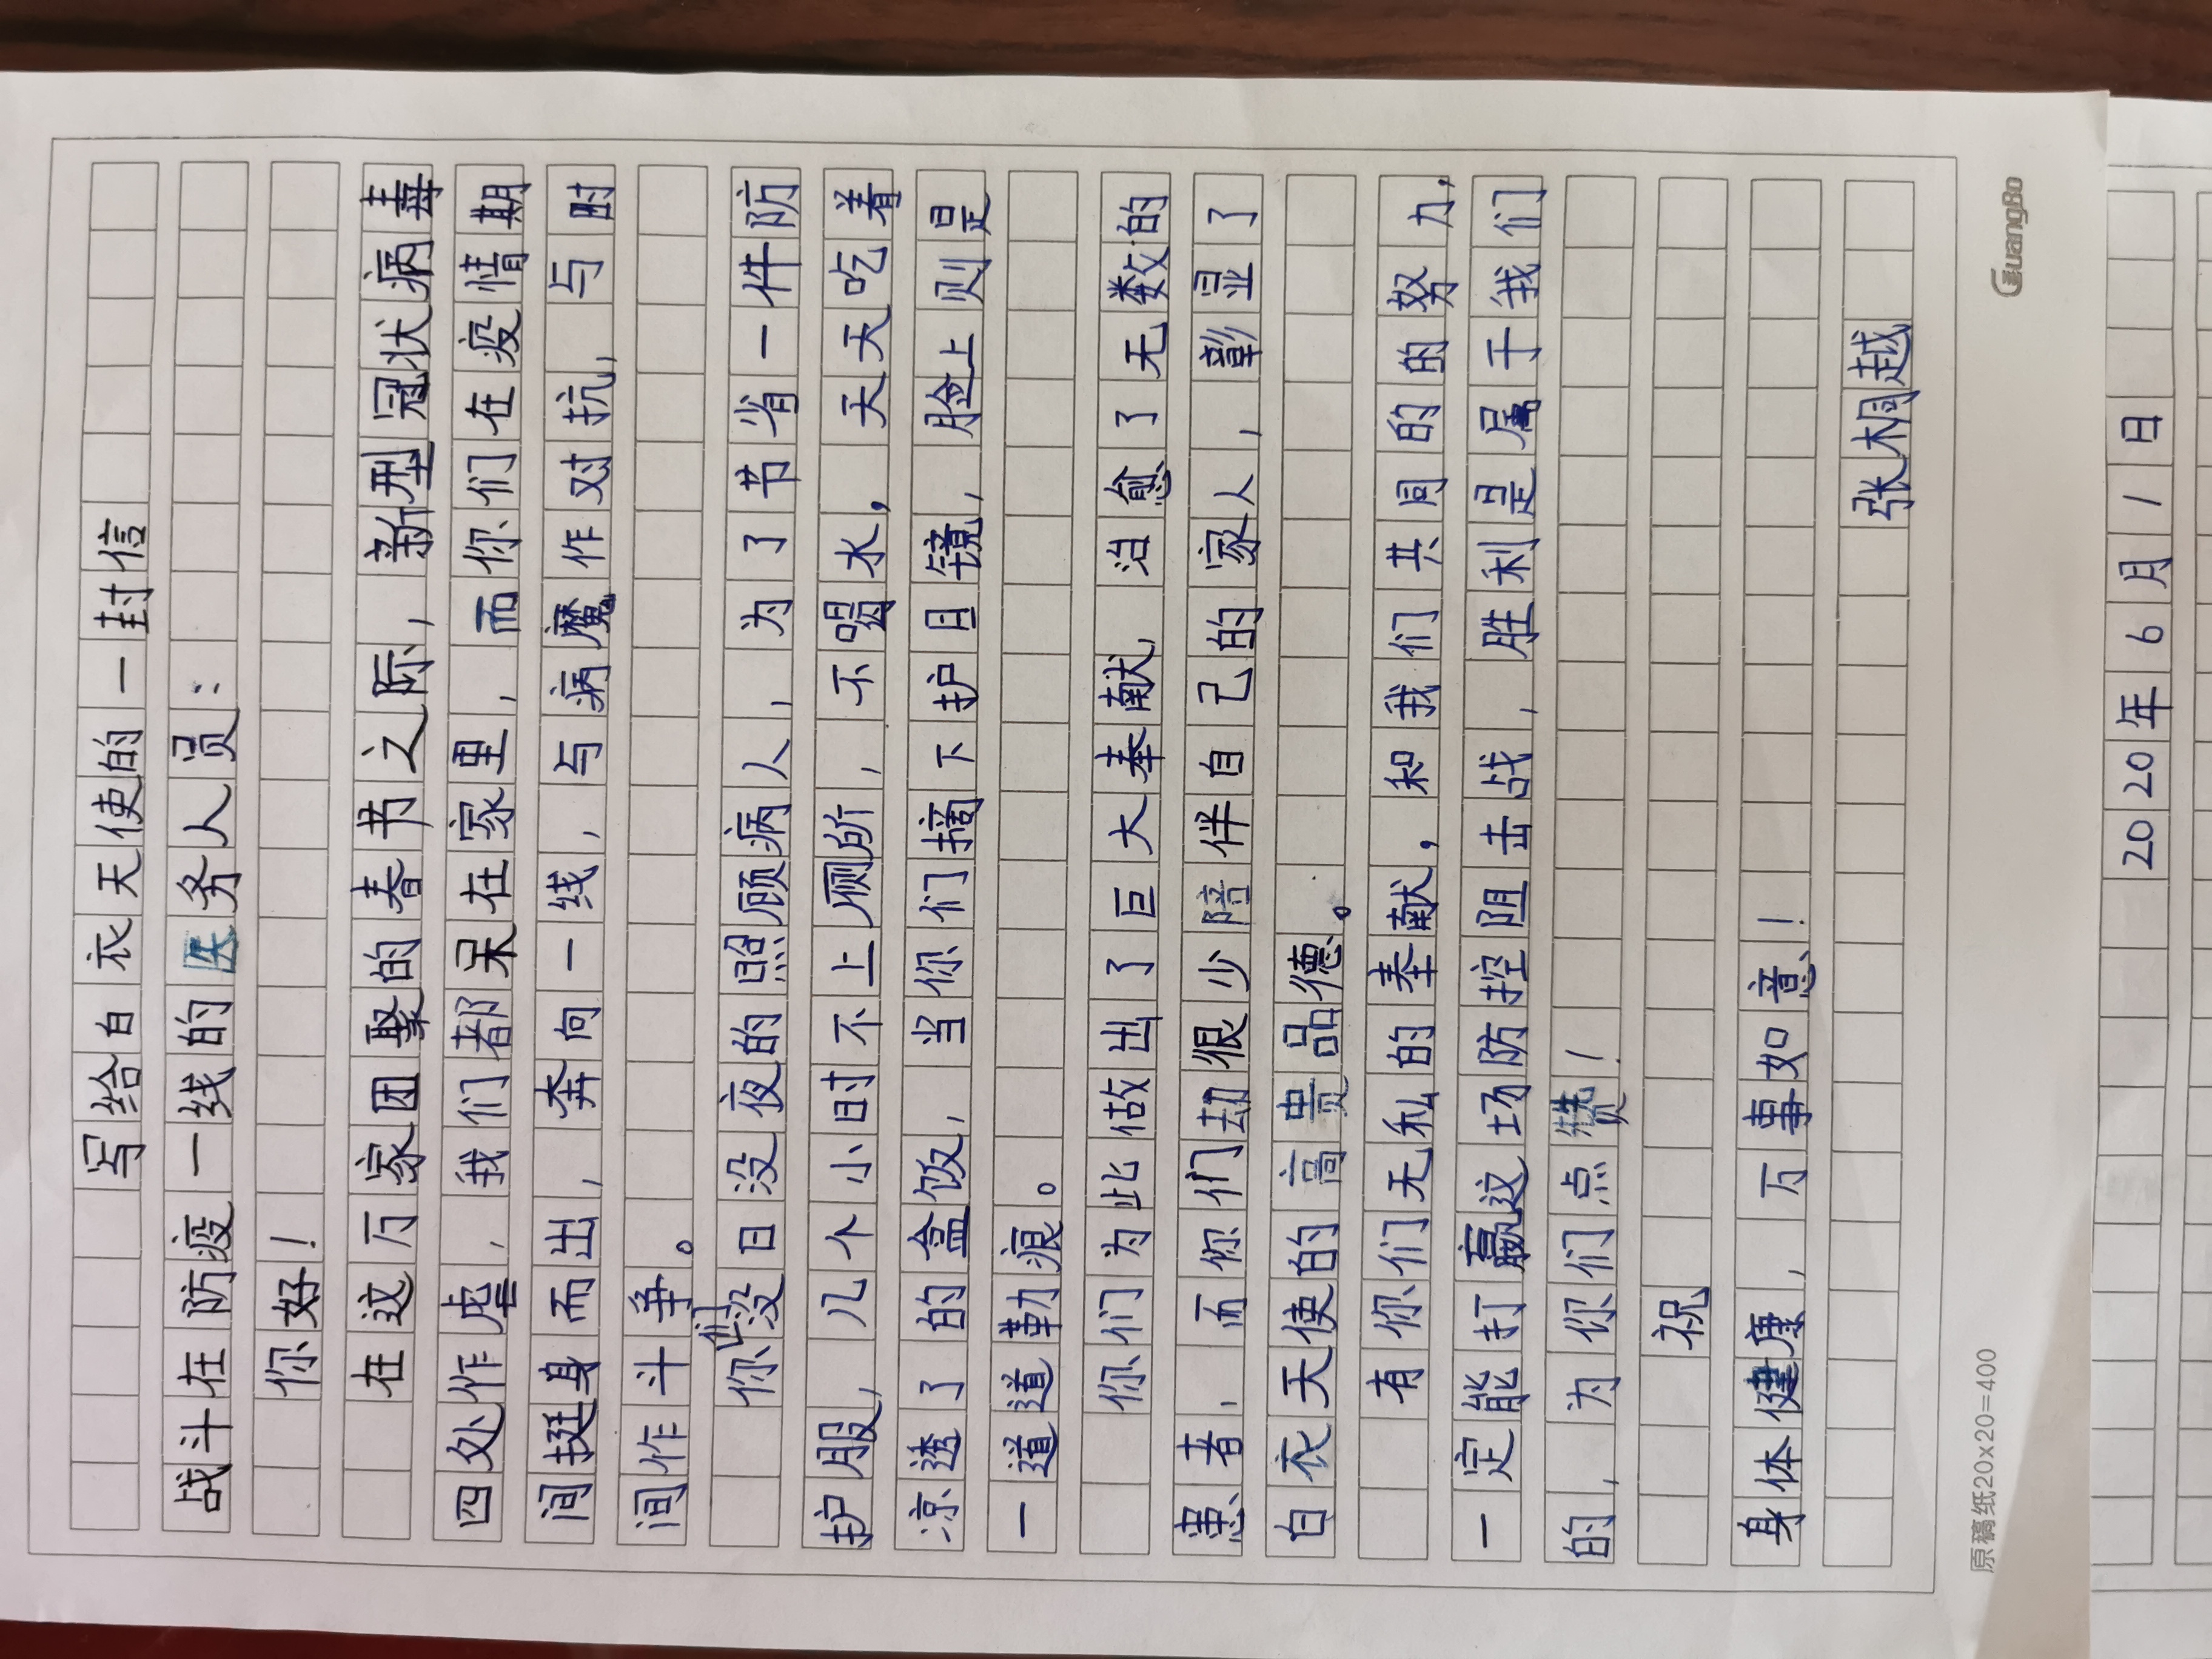 写给白衣天使的一封信
战斗在防疫一线的医务人员：
你好！
在这万家团聚的春节之际，新型冠状病毒
四处作虐，我们都呆在家里，而你们在疫情期
间挺身而出，奔向一线，与病魔作对抗，与时
间作斗争。
你们没日没夜的照顾病人，为了节省一件防
护服，几个小时不上厕所，不喝水，天天吃着
凉透了的盒饭，当你们摘下护目镜，脸上则是
一道道勒痕。
你们为此做出了巨大奉献，治愈了无数的
患者，而你们却很少陪伴自己的家人，彰显了
白衣天使的高贵品德。
有你们无私的奉献，和我们共同的的努力，
一定能打赢这场防控阻击战，胜利是属于我们
的，为你们点赞！
祝
身体健康，万事如意！
张桐越
2020年6月1日
原稿纸20x20=400
GuangBo